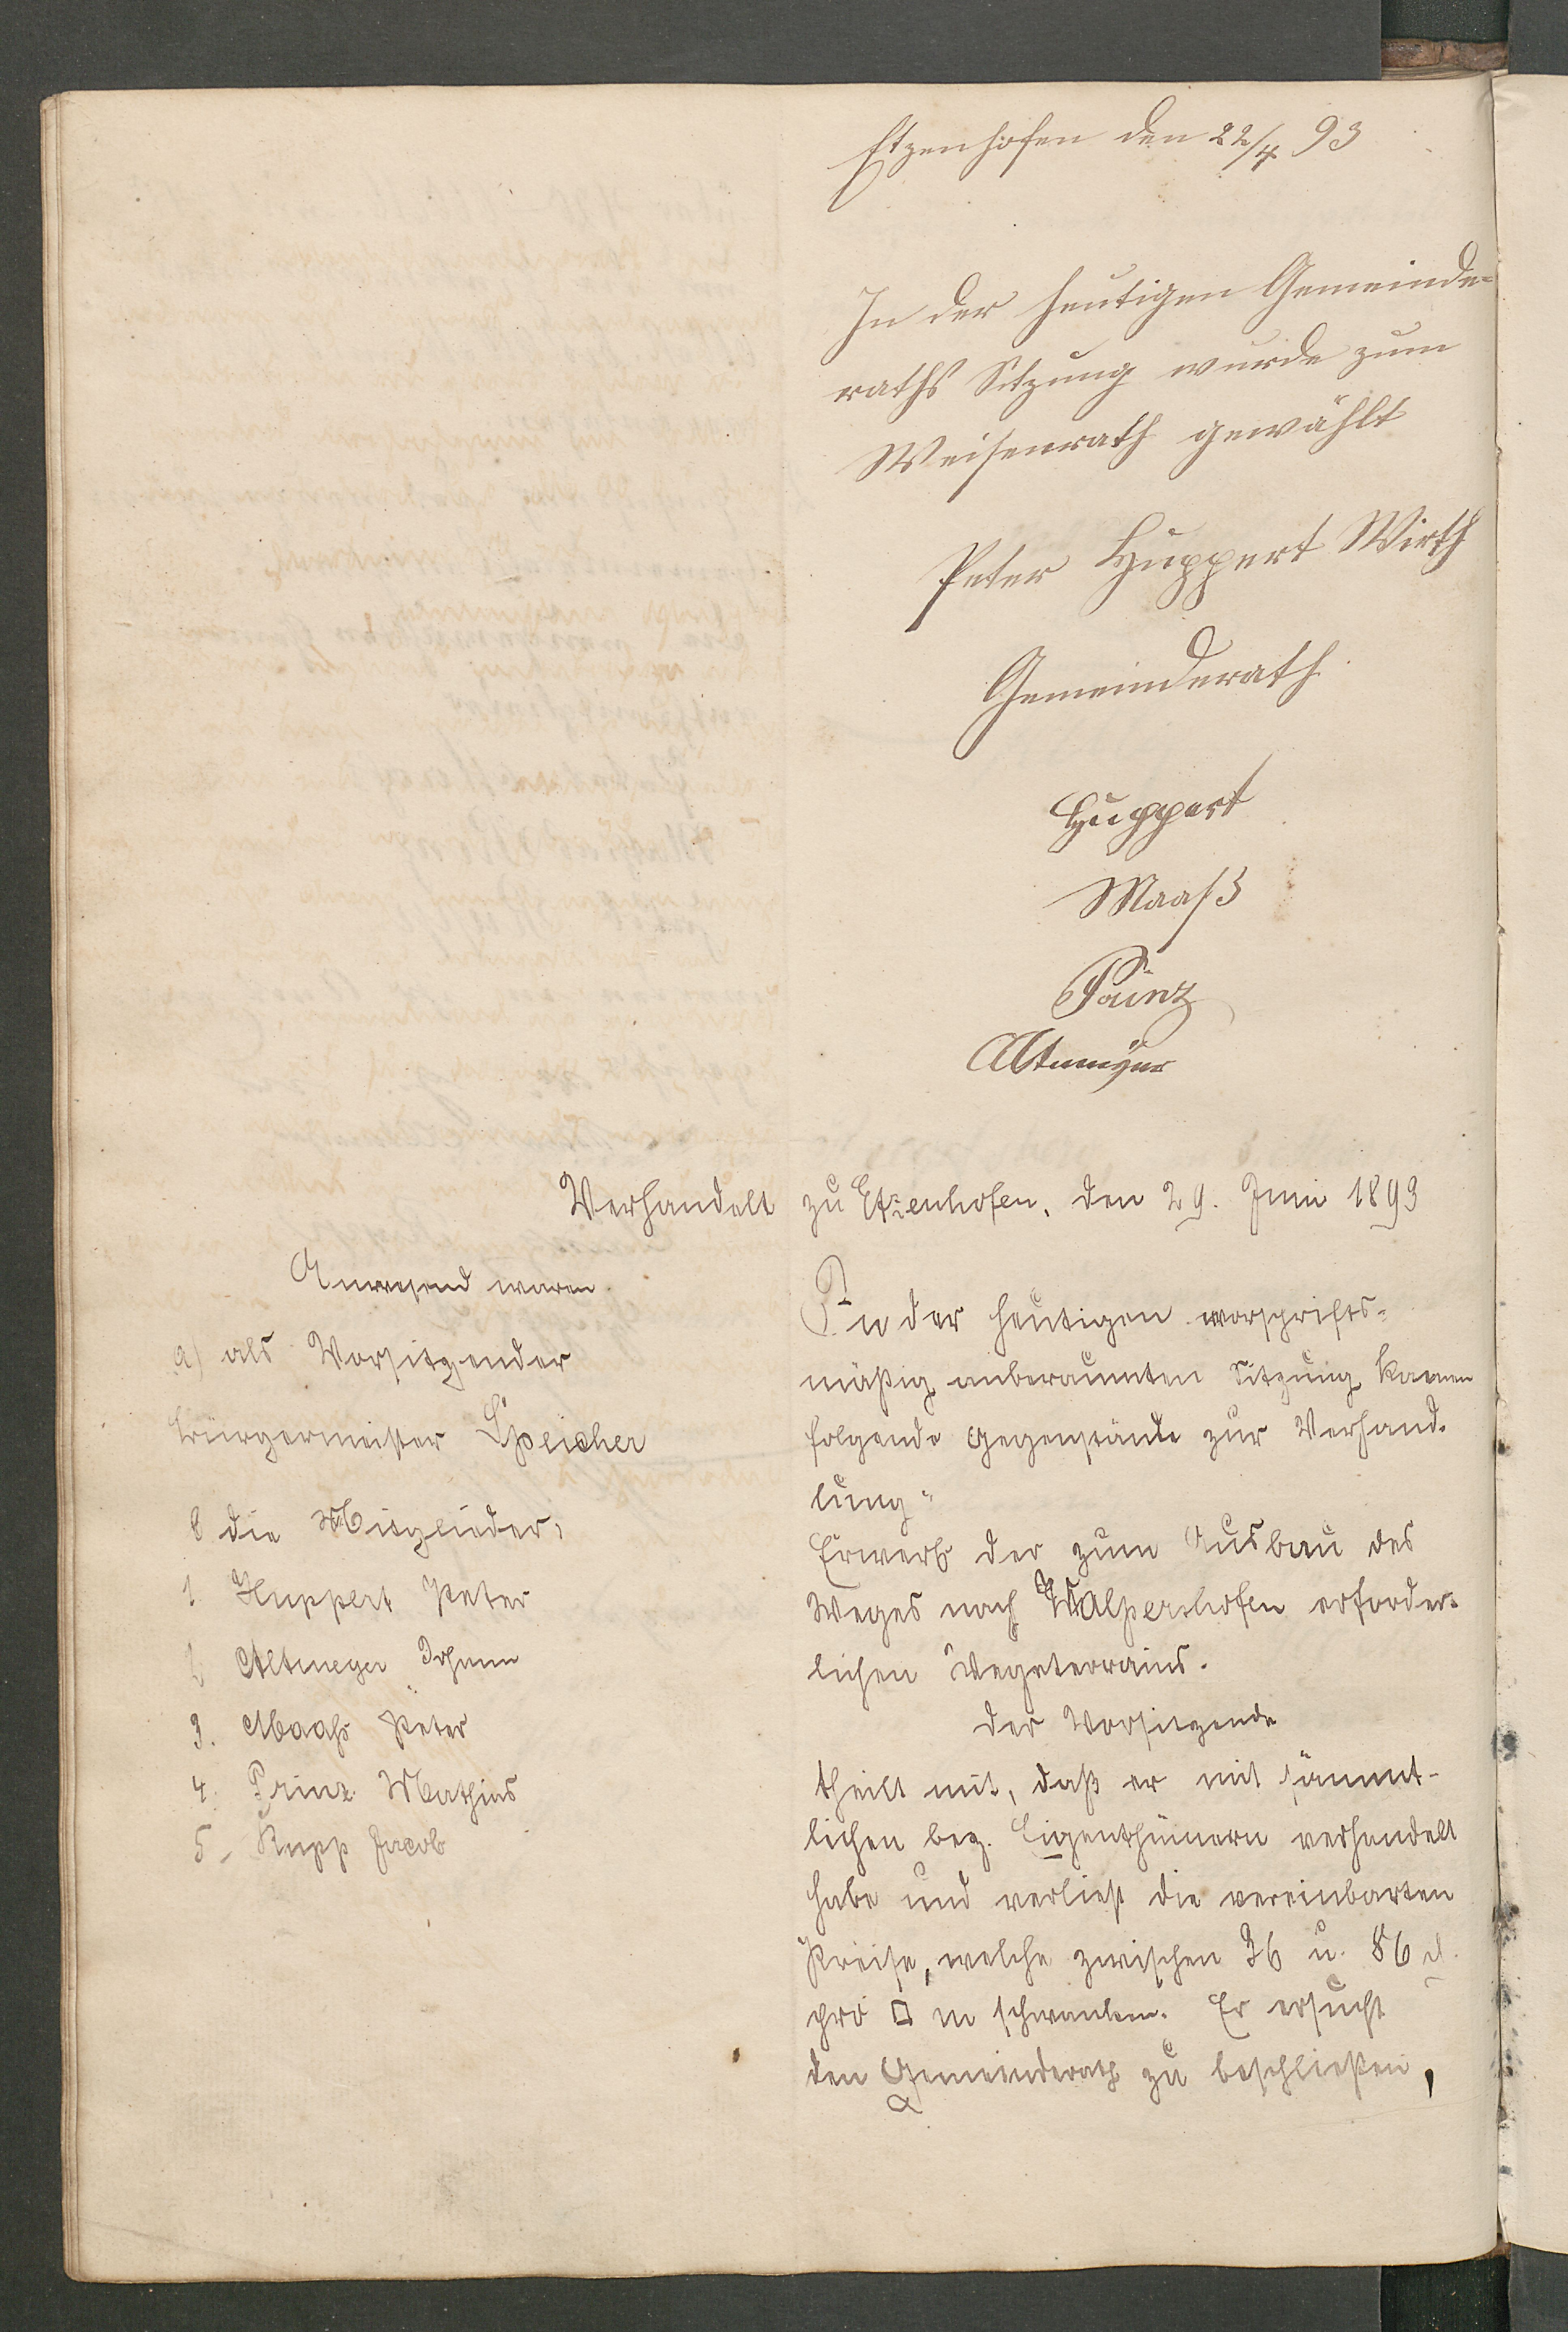 Etzenhofen den 22/4 93
In der heutigen Gemeinde-
raths Sitzung wurde zum
Weisenrath gewählt
Peter Huppert Wirth
Gemeinderath
Huppert
Maaß
Prinz
Altmeyer
Verhandelt zu Etzenhofen, den 29. Juni 1893
Anwesend waren
a) als Vorsitzender
Bürgermeister Speicher
b die Mitglieder,
1 Huppert Peter
2 Altmeyer Johann
3. Maahs Peter
4. Prinz Mathias
5. Rupp Jacob
In der heutigen vorschrifts-
mäßig anberaumten Sitzung kamen
folgende Gegenstände zur Verhand-
lung:
Erwerb der zum Ausbau des
Weges nach Walpershofen erforder-
lichen Wegeterrains.
Der Vorsitzende
theilt mit, daß er mit sämmt-
lichen bez. Eigenthümern verhandelt
habe und verliest die vereinbarten
Preise, welche zwischen 36 u. 86 d
pro □ m schwanken. Er ersucht
den Gemeinderath zu beschließen,